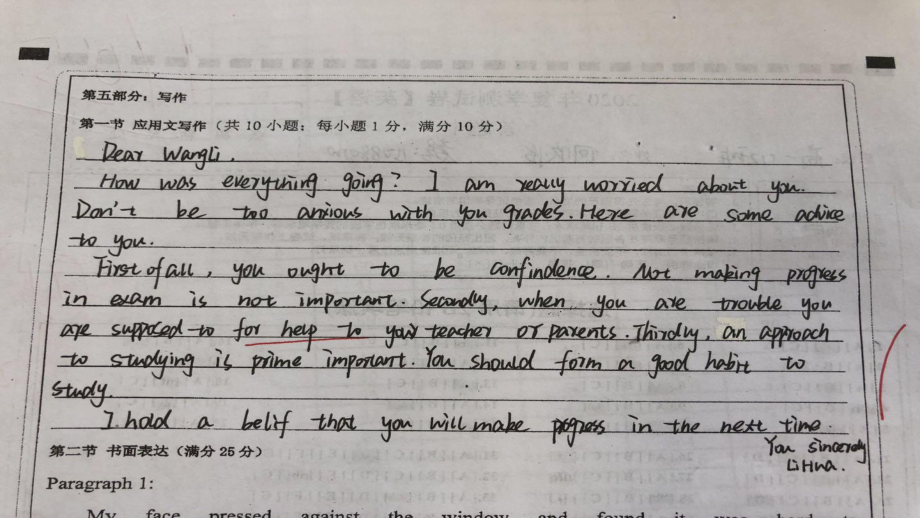 第五部分：写作
第一节 应用文写作（共 10 小题：每小题 1 分，满分 10 分）
Dear WangLi.
How was everything going? I am really worried about you.
Don't be too anxious with you grades. Here are some advice
to you.
First of all, you ought to be confindence. Not making progress
in exam is not important. Secondly, when you are trouble you
are supposed to for help to your teacher or parents. Thirdly, an approach
to studying is prime important. You should form a good habit to
study.
I hold a belif that you will make progress in the next time.
You sincerely
LiHua.
第二节 书面表达（满分 25 分）
Paragraph 1:
My face pressed against the window and found it was hard to